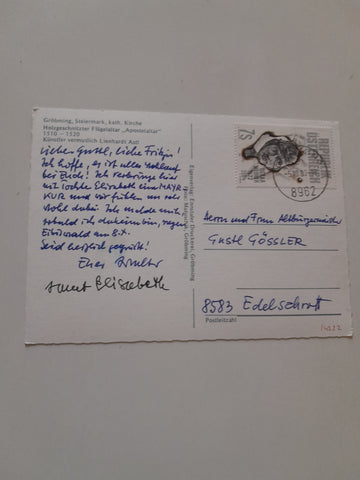 Gröbming, Steiermark, kath. Kirche
Holzgeschnitzter Flügelaltar „Apostelaltar"
1510 – 1520
Künstler vermutlich Lienhardt Astl
Lieber Gustl, liebe
Ich hoffe, es ist alles wohlauf
bei Euch! Ich verbringe hier
mit Elisabeth eine MAYR-
KUR und wir fühlen uns sehr
wohl dabei. Ich melde mich,
sobald ich daheim bin, wegen
Eibiswald am
Seid herzlich gegrüßt!
Euer
samt Elisabeth
Gröbming
7 S
8962
Herrn und Frau Altbürgermeister
Gustl GÖSSLER
8583 Edelschrott
Postleitzahl